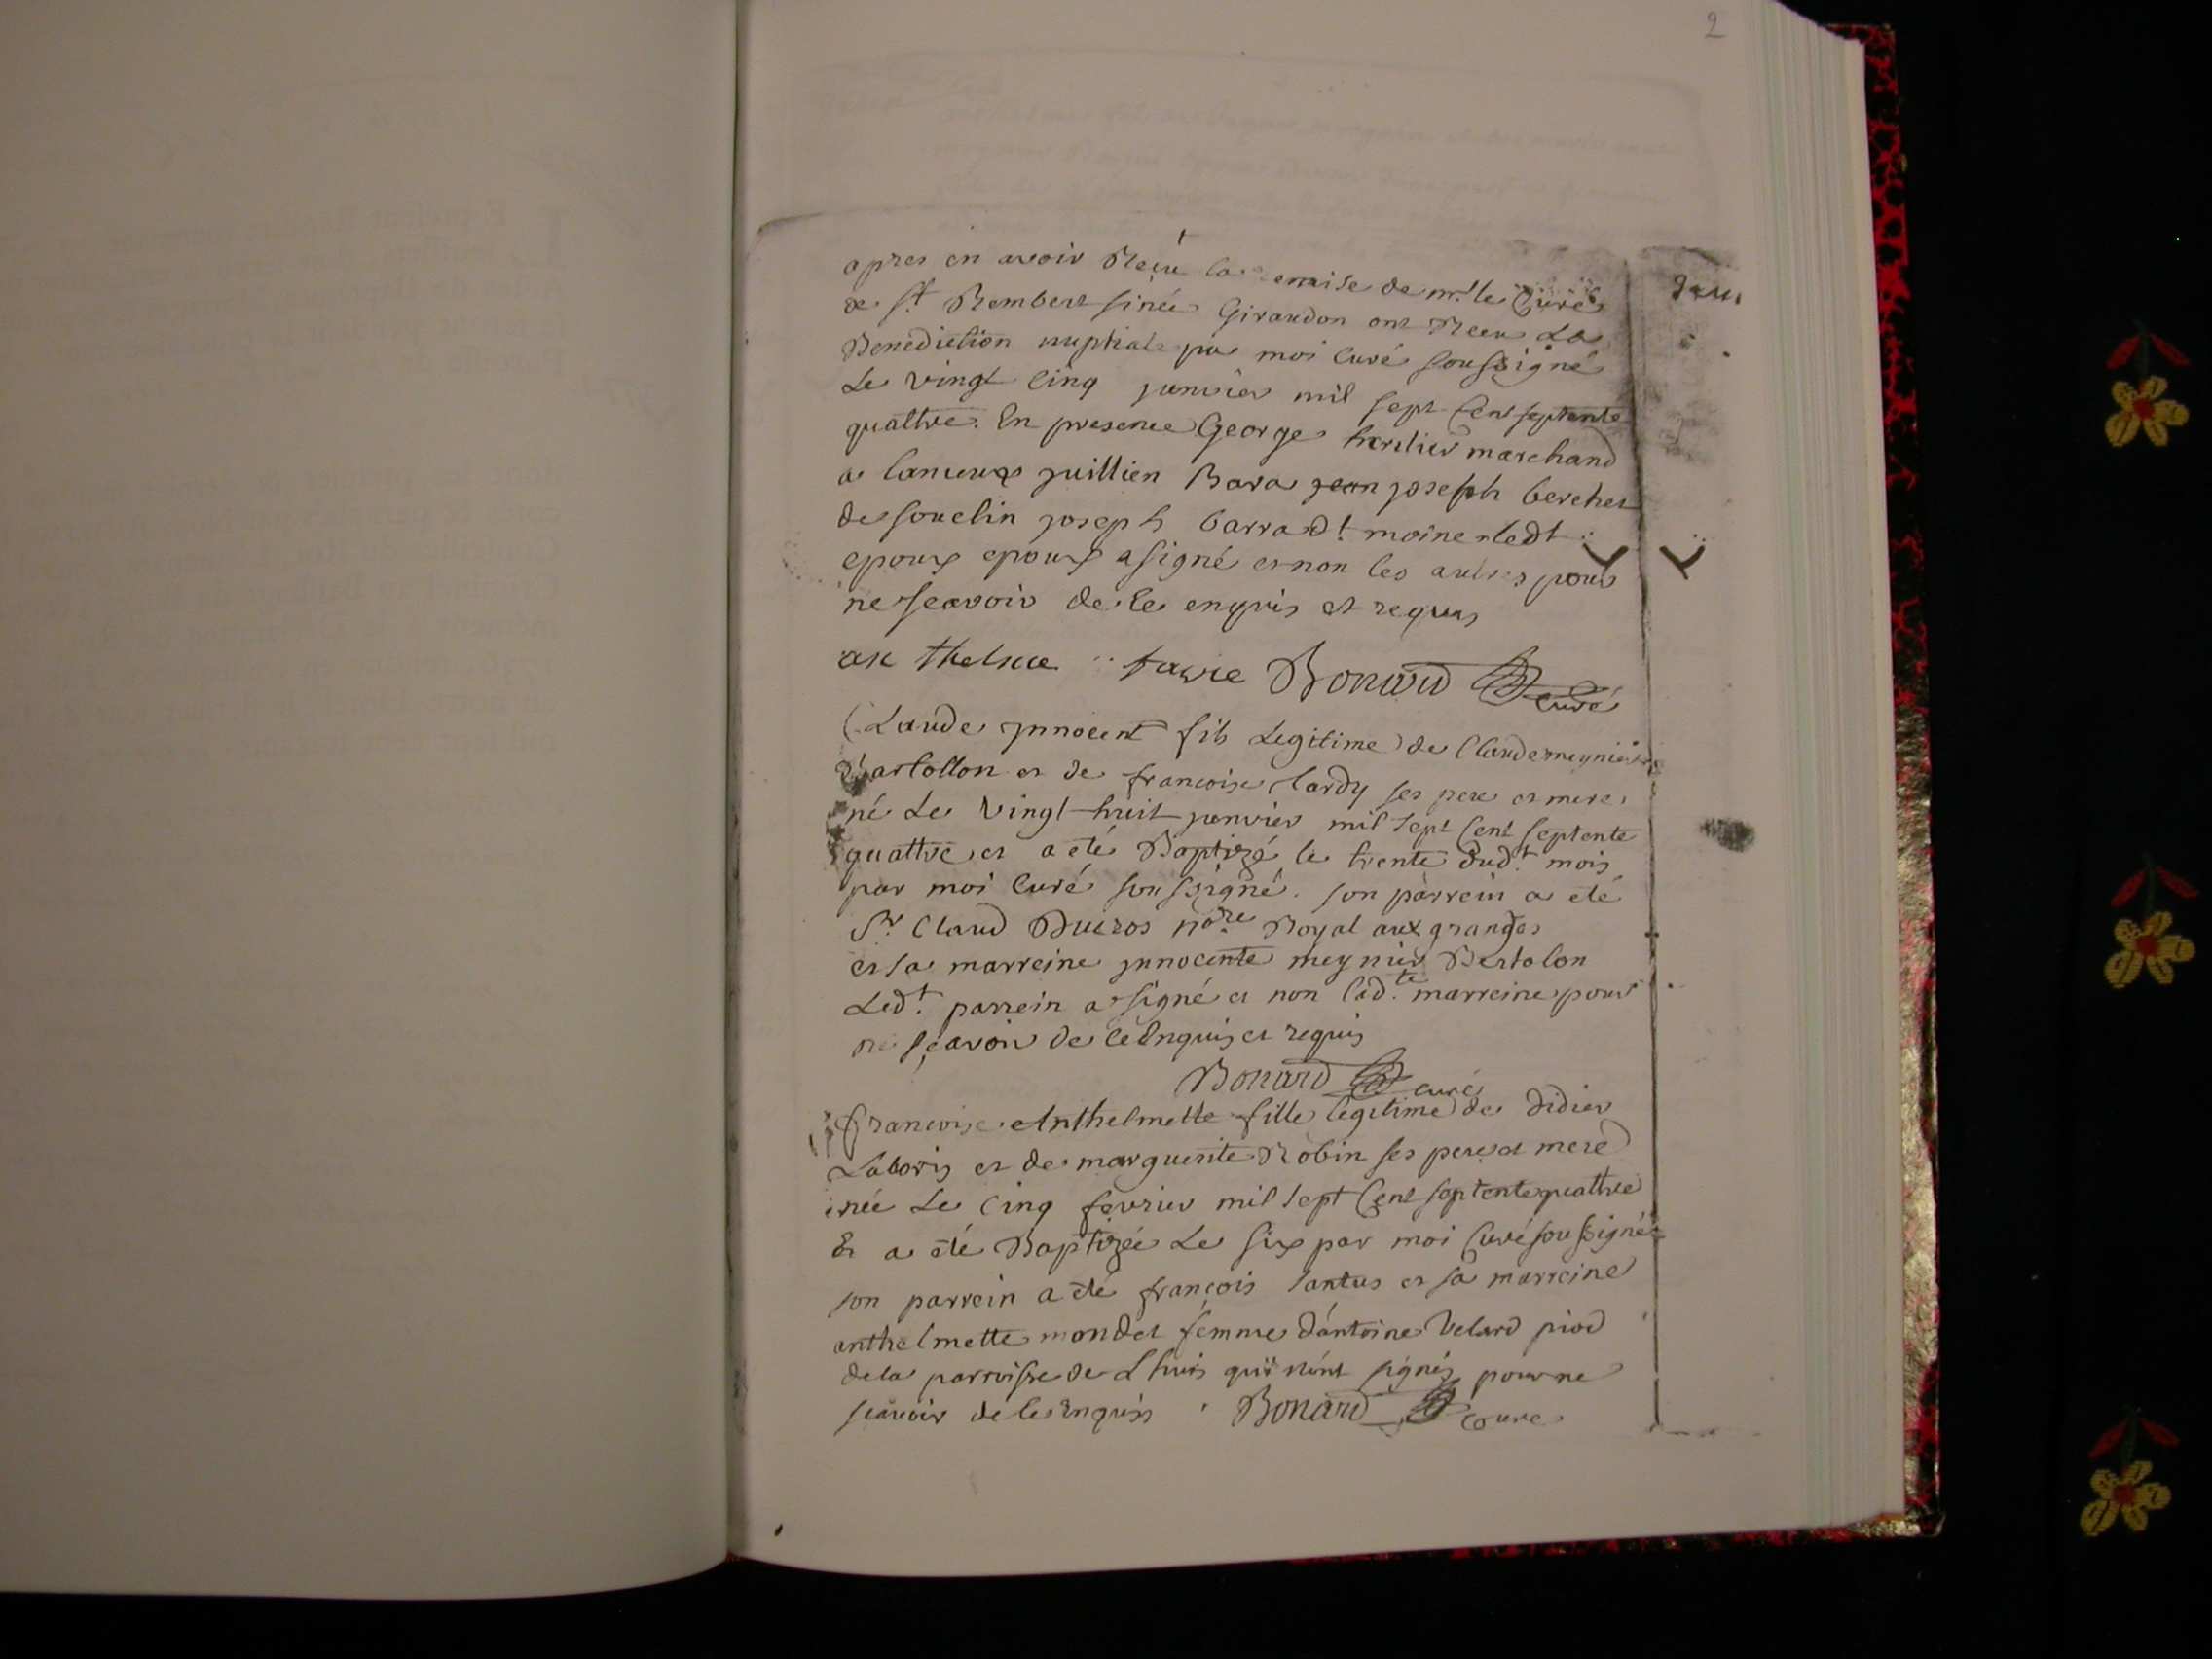 2
apres en avoir Reçu la remise de mr. le Curé
de St Rembert sinée Giraudon ont Receu La
Benediction nuptiale par moi curé soussigné
Le vingt cinq janvier mil sept cent septente
quattre. En presence George hostier marchand
a lancieux juillien Bara jean joseph bercher
de souclin joseph barra dt. moine ledt
epoux epoux a signé et non les autres pour
ne scavoir de ce enquis et requis
anthelme favre Bonard curé
Claude jnnocent fils Legitime de Claude meynier
Bartollon et de francoise Cardy ses pere et mere
né Le vingt-huit janvier mil sept cent septente
quattre et a eté Baptizé le trente dudt. mois
par moi Curé soussigné. son parrein a eté
Sr. Claud Ducros nore. Royal aux granges
et sa marreine jnnocente meynier Bertolon
Ledt. parrein a signé et non ladte. marreine pour
ne sçavoir de ce Enquis et requis
Bonard curé
francoise Anthelmette fille legitime de didier
Laboris et de marguerite Robin ses pere et mere
née Le cinq fevrier mil sept cent septente quattre
Et a eté Baptizée Le six par moi Curé soussigné
son parrein a eté françois santus et sa marreine
anthelmette mondet femme d'antoine Velard piod
de la parroisse de Lhuis qui n'ont signés pour ne
scavoir de ce Enquis Bonard curé